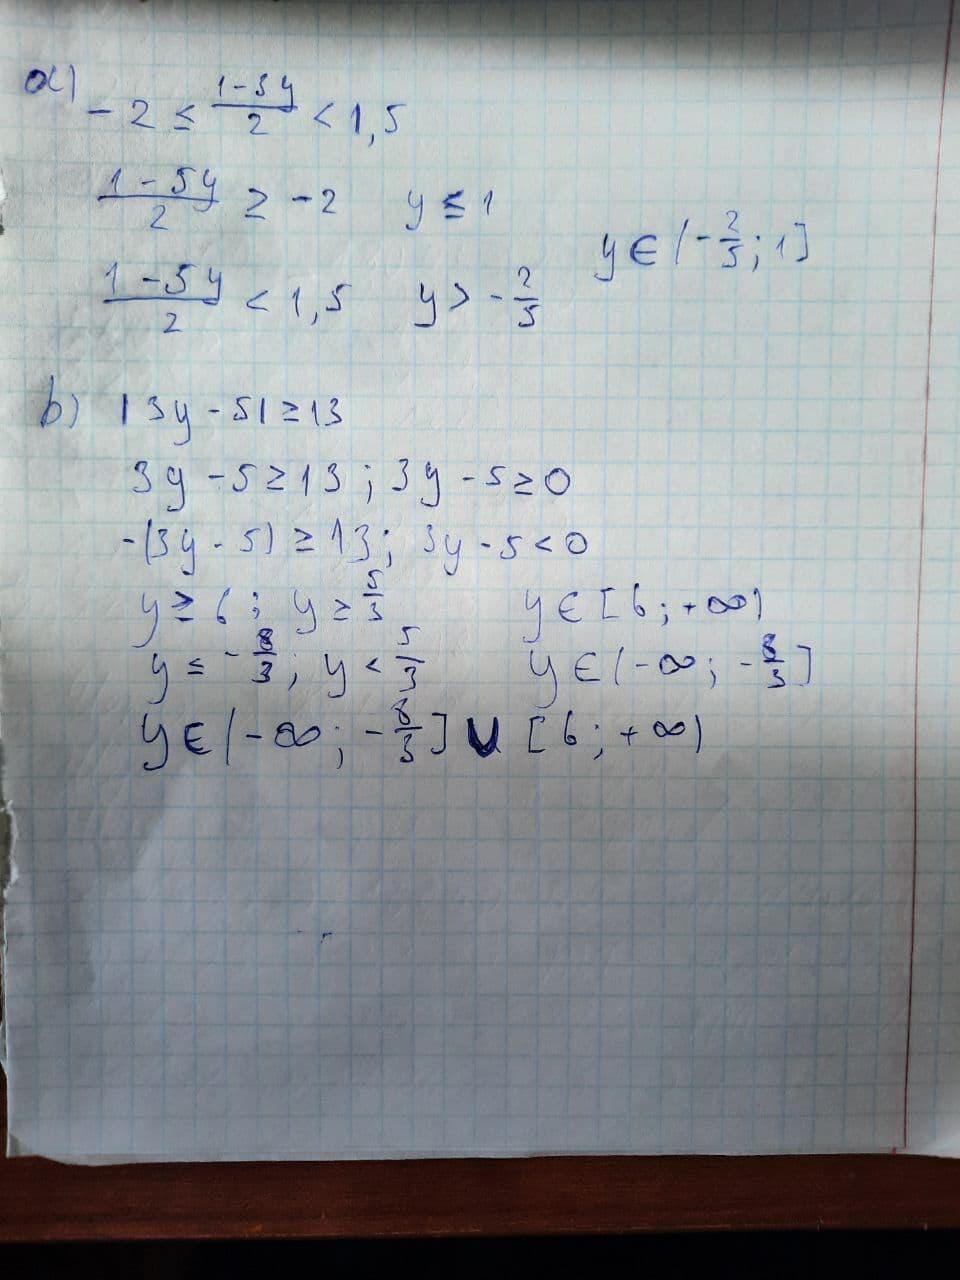 a)
-2 ≤ (1-5y)/2 < 1,5
(1-5y)/2 ≥ -2 y ≤ 1
y ∈ (-2/5; 1]
(1-5y)/2 < 1,5 y > -2/5
b) |3y-5| ≥ 13
3y-5 ≥ 13; 3y-5 ≥ 0
-(3y-5) ≥ 13; 3y-5 < 0
y ≥ 6; y ≥ 5/3 y ∈ [6; +∞)
y ≤ -8/3; y < 5/3 y ∈ (-∞; -8/3]
y ∈ (-∞; -8/3] ∪ [6; +∞)